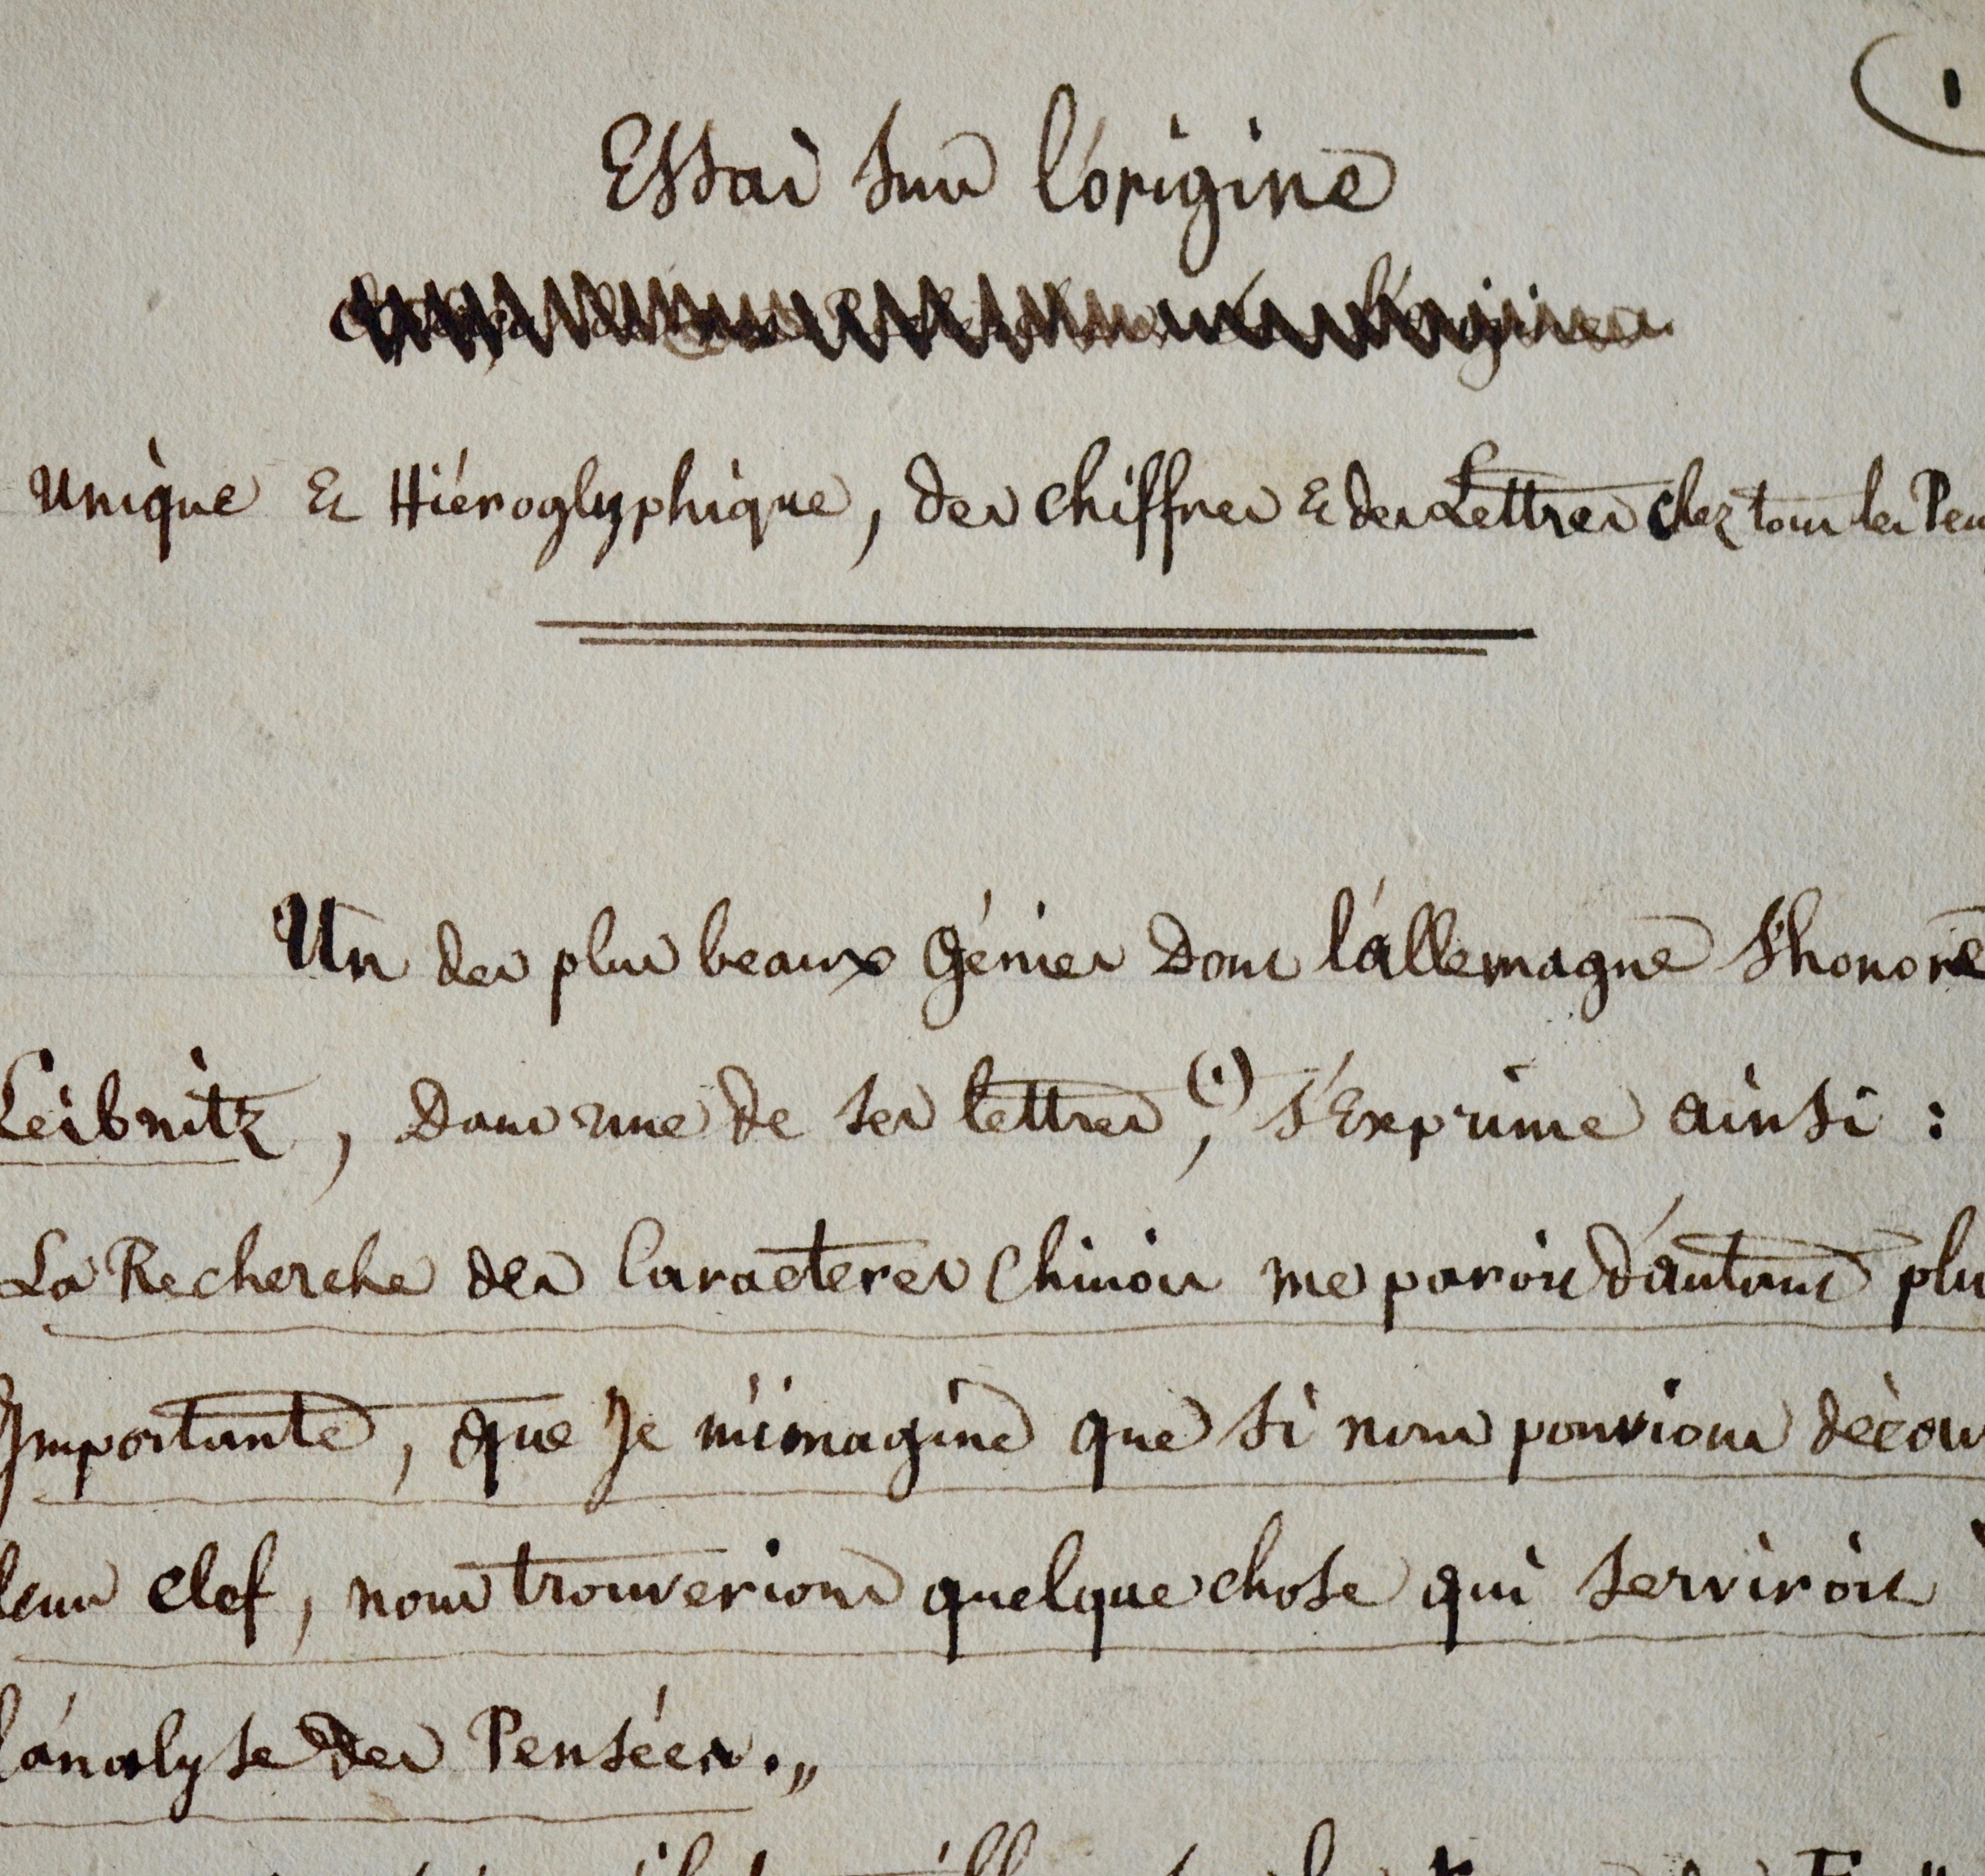 1
Essai sur l'origine
Unique & Hiéroglyphique, des chiffres & des Lettres chez tous les Peu
Un des plus beaux génies dont l'allemagne s'honore
Leibnitz, dans une de ses lettres,(1) s'Exprime ainsi :
La Recherche des Caracteres Chinois me paroit d'autant plu
Importante, que Je m'imagine que si nous pouvions décou
leur clef, nous trouverions quelque chose qui serviroit à
l'analyse des Pensées.„